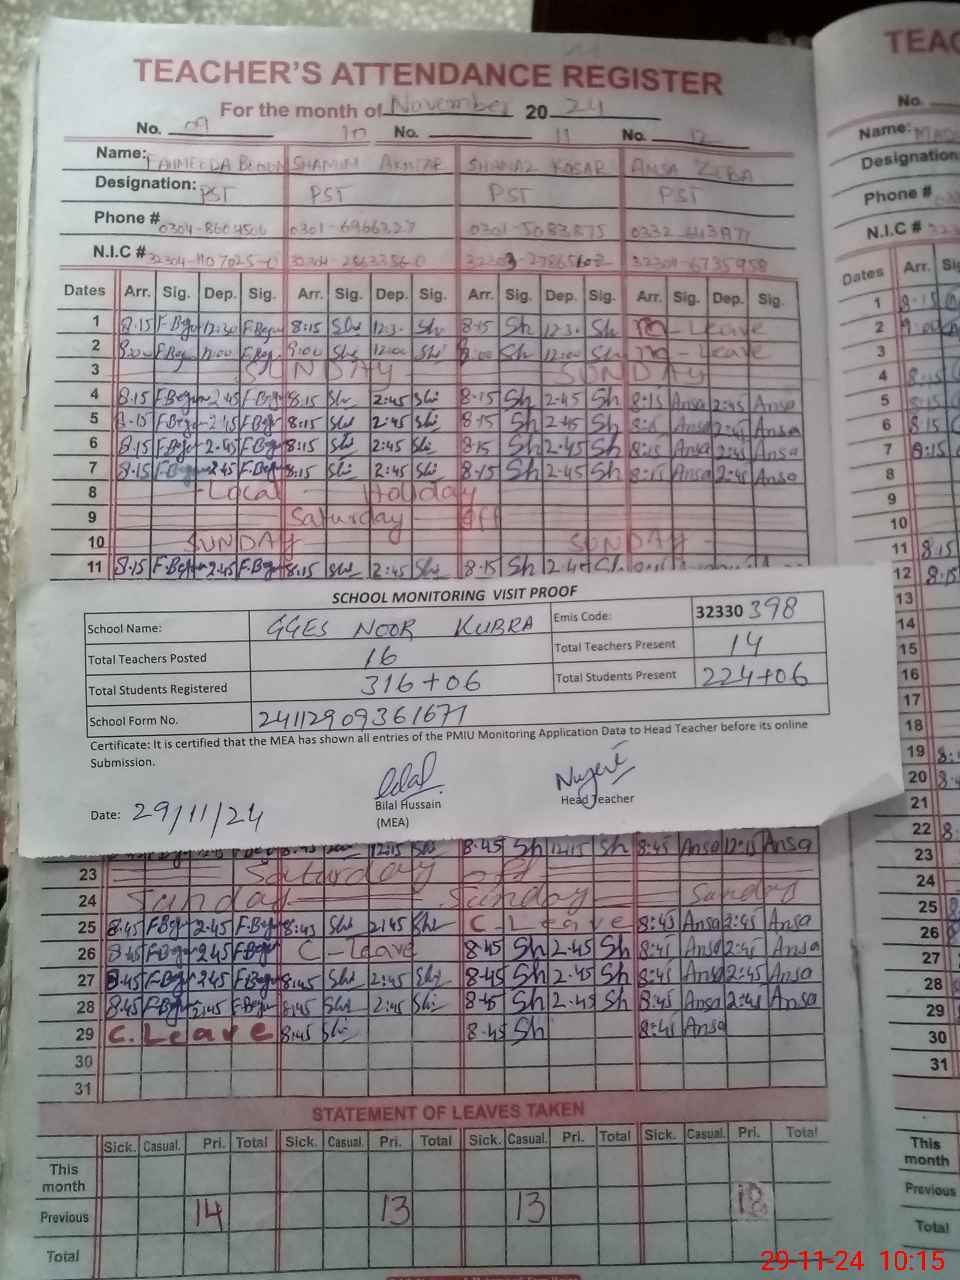 TEACHER'S ATTENDANCE REGISTER
For the month of November 20 24
No. 09 10 No. 11 No. 12
Name: FAHMEEDA BEGUM SHAMIM AKHTAR SHANAZ KOSAR ANSA ZEBA
Designation: PST PST PST PST
Phone # 0304-8604506 0301-6966227 0301-5083875
N.I.C #
Dates Arr. Sig. Dep. Sig. Arr. Sig. Dep. Sig. Arr. Sig. Dep. Sig. Arr. Sig. Dep. Sig.
1 8.15 F.Begum 12:30 F.Begum 8:15 Sh 12:30 Sh 8.15 Sh 12:30 Sh m - Leave
2 9:00 F.Begum 12:00 F.Begum 9:00 Sh 12:00 Sh 9:00 Sh 12:00 Sh m - Leave
3 SUNDAY SUNDAY
4 8.15 F.Begum 2.45 F.Begum 8:15 Sh 2:45 Sh 8.15 Sh 2.45 Sh 8:15 Ansa 2:45 Ansa
5 8.15 F.Begum 2.45 F.Begum 8:15 Sh 2:45 Sh 8.15 Sh 2.45 Sh 8:15 Ansa 2:45 Ansa
6 8.15 F.Begum 2.45 F.Begum 8:15 Sh 2:45 Sh 8.15 Sh 2.45 Sh 8:15 Ansa 2:45 Ansa
7 8.15 F.Begum 2.45 F.Begum 8:15 Sh 2:45 Sh 8.15 Sh 2.45 Sh 8:15 Ansa 2:45 Ansa
8 Local Holiday
9 Saturday off
10 SUNDAY SUNDAY
11 8.15 F.Begum 2.45 F.Begum 8:15 Sh 2:45 Sh 8.15 Sh 2.45 Sh
SCHOOL MONITORING VISIT PROOF
School Name: GGES NOOR KUBRA Emis Code: 32330 398
Total Teachers Posted 16 Total Teachers Present 14
Total Students Registered 316+06 Total Students Present 224+06
School Form No. 24112909361671
Certificate: It is certified that the MEA has shown all entries of the PMIU Monitoring Application Data to Head Teacher before its online
Submission.
Date: 29/11/24
Bilal Hussain
(MEA)
Head Teacher
8:45 Sh 12:15 Sh 8.45 Sh 12:15 Sh 8:45 Ansa 12:15 Ansa
23 Saturday off
24 Sunday Sunday Sunday
25 8.45 F.Begum 2.45 F.Begum 8:45 Sh 2:45 Sh C. Leave 8:45 Ansa 2:45 Ansa
26 8.45 F.Begum 2.45 F.Begum C - Leave 8.45 Sh 2.45 Sh 8:45 Ansa 2:45 Ansa
27 8.45 F.Begum 2.45 F.Begum 8:45 Sh 2:45 Sh 8.45 Sh 2.45 Sh 8:45 Ansa 2:45 Ansa
28 8.45 F.Begum 2.45 F.Begum 8:45 Sh 2:45 Sh 8.45 Sh 2.45 Sh 8:45 Ansa 2:45 Ansa
29 C. Leave 8:45 Sh 8.45 Sh 8:45 Ansa
30
31
STATEMENT OF LEAVES TAKEN
Sick. Casual. Pri. Total Sick. Casual. Pri. Total Sick. Casual. Pri. Total Sick. Casual. Pri. Total
This
month
Previous 14 13 13 18
Total
TEAC
No.
Name:
Designation
Phone #
N.I.C #
Dates Arr.
1 8.15
2 9:00
3
4 8.15
5 8.15
6 8.15
7 8:15
8
9
10
11 8.15
12 8.15
13
14
15
16
17
18
19
20
21
22
23
24
25
26
27
28
29
30
31
This
month
Previous
Total
29-11-24 10:15